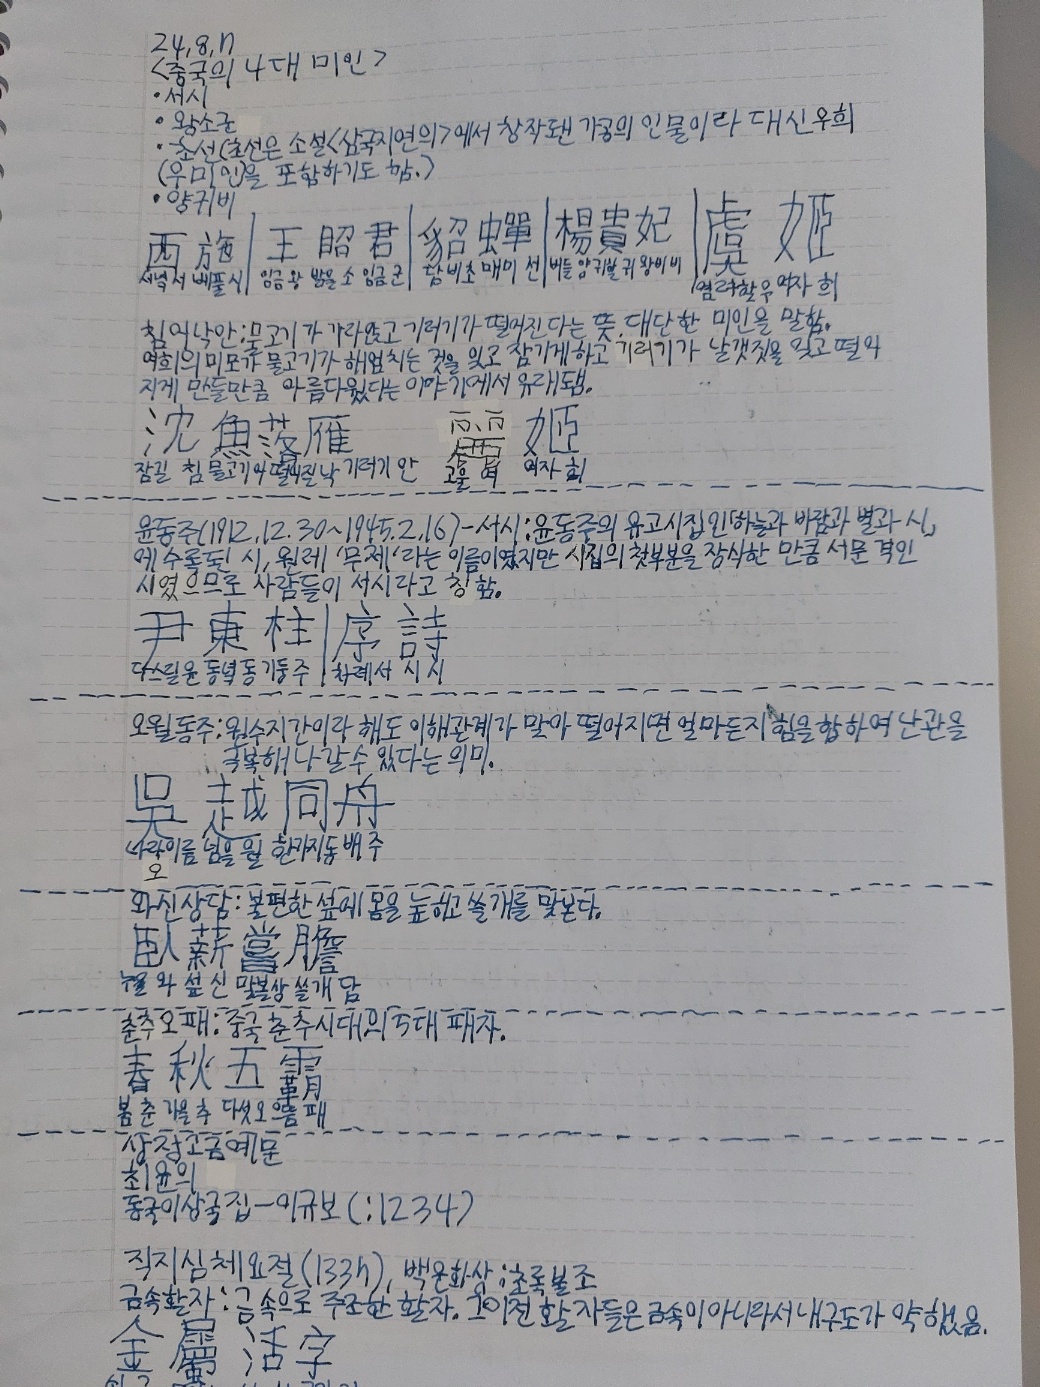 24, 8, 17
<중국의 4대 미인>
• 서시
• 왕소군
• 초선(초선은 소설<삼국지연의>에서 창작된 가공의 인물이라 대신 우희
(우미인)을 포함하기도 함.)
• 양귀비
西 施 | 王 昭 君 | 貂 蟬 | 楊 貴 妃 | 虞 姬
서녘 서 베풀 시 임금 왕 밝을 소 임금 군 담비 초 매미 선 버들 양 귀할 귀 왕비 비 염려할 우 여자 희
침어낙안:물고기가 가라앉고 기러기가 떨어진다는 뜻. 대단한 미인을 말함.
여희의 미모가 물고기가 헤엄치는 것을 잊고 잠기게 하고 기러기가 날갯짓을 잊고 떨어
지게 만들만큼 아름다웠다는 이야기에서 유래됨.
沈 魚 落 雁 麗 姬
잠길 침 물고기 어 떨어질 낙 기러기 안 고울 여 여자 희
윤동주(1912.12.30~1945.2.16)-서시:윤동주의 유고시집인「하늘과 바람과 별과 시」
에 수록된 시, 원레 '무제'라는 이름이였지만 시집의 첫부분을 장식한 만큼 서문 격인
시였으므로 사람들이 서시라고 칭함.
尹 東 柱 | 序 詩
다스릴 윤 동녘 동 기둥 주 | 차례 서 시 시
오월동주:원수지간이라 해도 이해관계가 맞아 떨어지면 얼마든지 힘을 합하여 난관을
극복해 나갈 수 있다는 의미.
吳 越 同 舟
나라이름 넘을 월 한가지 동 배 주
오
와신상담:불편한 섶에 몸을 눞히고 쓸개를 맛본다.
臥 薪 嘗 膽
누울 와 섶 신 맛볼 상 쓸개 담
춘추오패:중국 춘추시대의 5대 패자.
春 秋 五 霸
봄 춘 가을 추 다섯 오 으뜸 패
상정고금예문
최윤의
동국이상국집-이규보(:1234)
직지심체요절(1377), 백운화상:초록불조
금속활자:금속으로 주조한 활자. 그 이전 활자들은 금속이 아니라서 내구도가 약했음.
金 屬 活 字